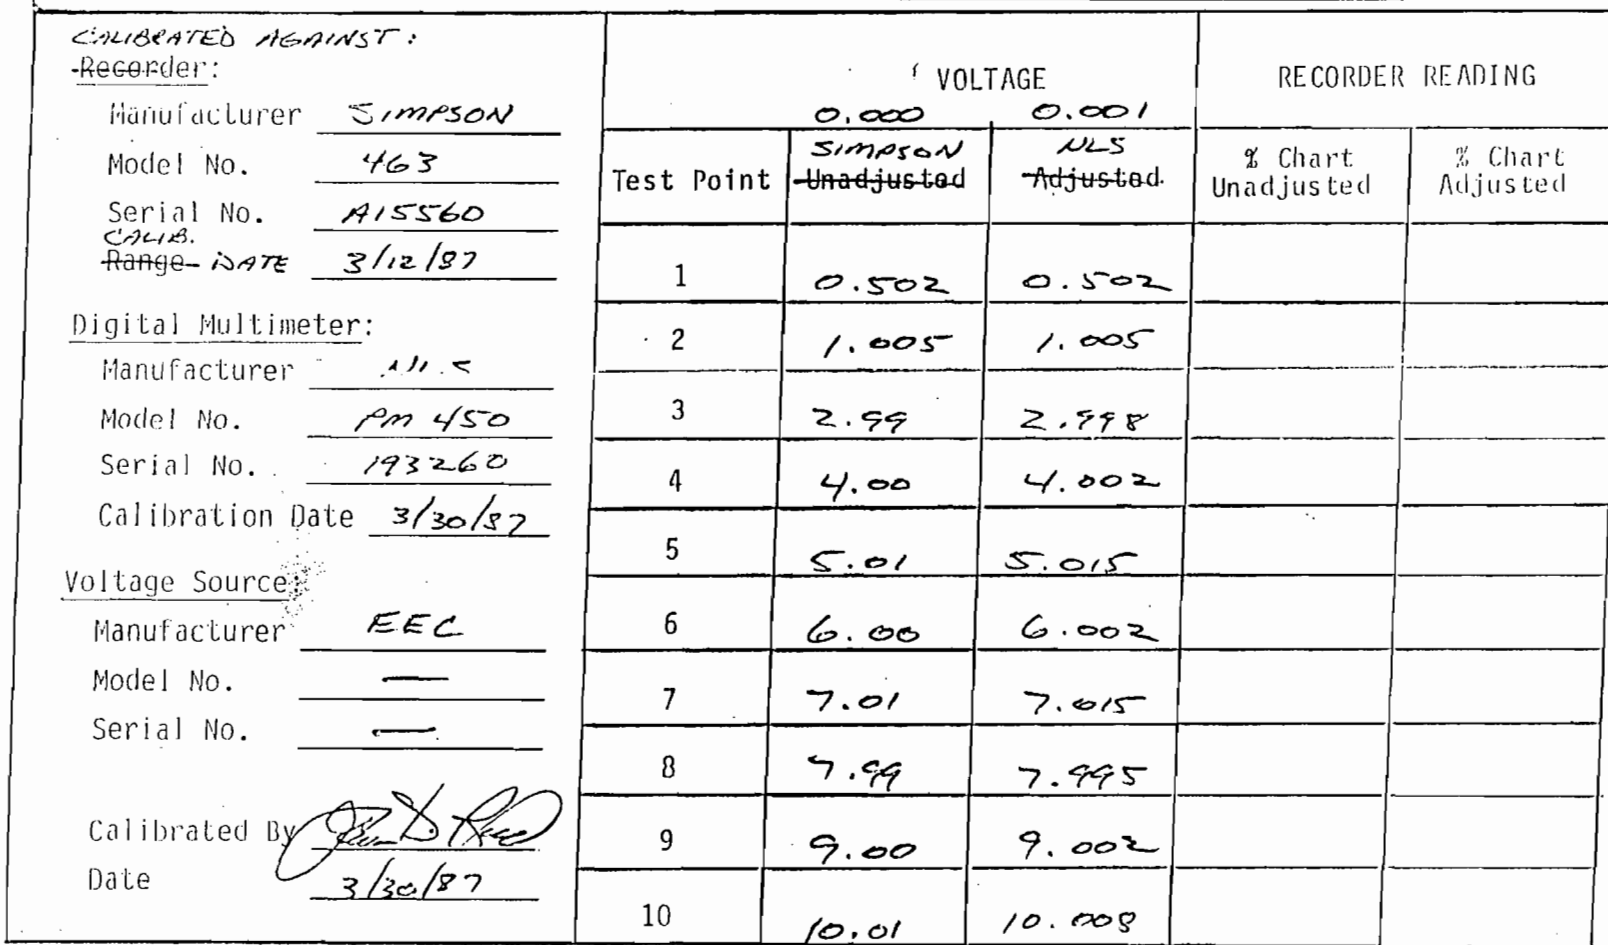 CALIBRATED AGAINST:
Recorder:
Manufacturer SIMPSON
Model No. 463
Serial No. A15560
CALIB.
Range DATE 3/12/87
Digital Multimeter:
Manufacturer NLS
Model No. PM 450
Serial No. 193260
Calibration Date 3/30/87
Voltage Source:
Manufacturer EEC
Model No. —
Serial No. —
Calibrated By
Date 3/30/87
VOLTAGE RECORDER READING
0.000 0.001
SIMPSON NLS
Test Point Unadjusted Adjusted % Chart Unadjusted % Chart Adjusted
1 0.502 0.502
2 1.005 1.005
3 2.99 2.998
4 4.00 4.002
5 5.01 5.015
6 6.00 6.002
7 7.01 7.015
8 7.99 7.995
9 9.00 9.002
10 10.01 10.008